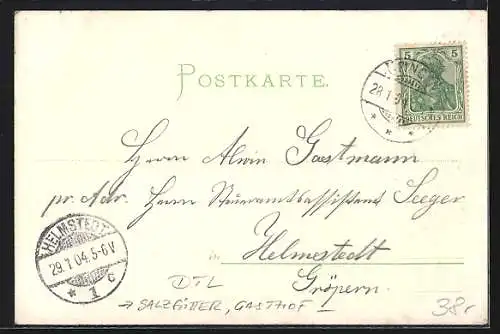 5 5
DEUTSCHES REICH
28.1.04
* * *
POSTKARTE.
Herrn Alwin Gastmann
pr. Adr. Herrn Steueramtsassistent Seeger
Helmestedt
Gröpern.
HELMSTEDT
29.1.04.5-6V
* 1 c
DTL
→ SALZGITTER, GASTHOF
38,-